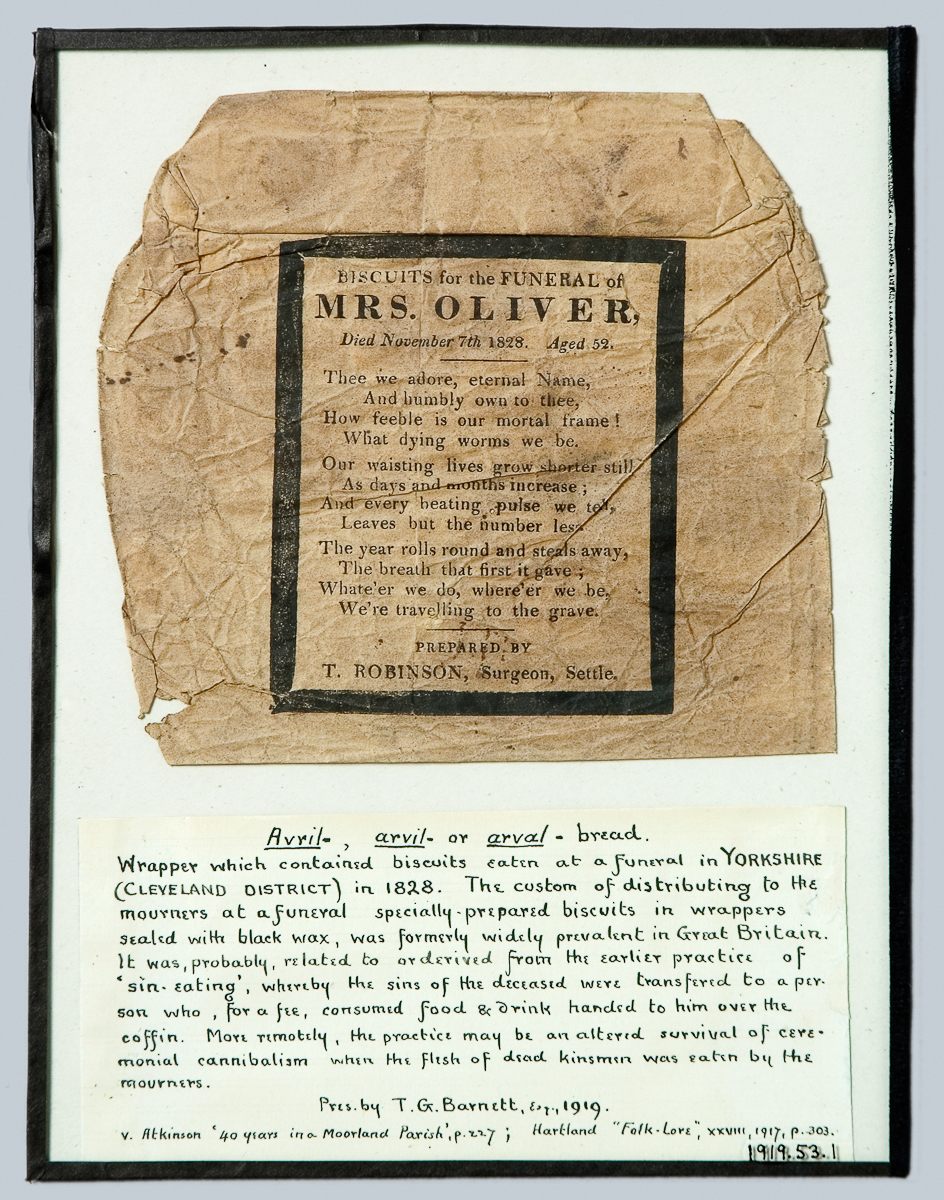 BISCUITS for the FUNERAL of
MRS. OLIVER,
Died November 7th 1828. Aged 52.
Thee we adore, eternal Name,
And humbly own to thee,
How feeble is our mortal frame!
What dying worms we be.
Our waisting lives grow shorter still
As days and months increase;
And every beating pulse we tell,
Leaves but the number less.
The year rolls round and steals away,
The breath that first it gave;
Whate'er we do, where'er we be,
We're travelling to the grave.
PREPARED BY
T. ROBINSON, Surgeon, Settle.
Avril-, arvil- or arval- bread.
Wrapper which contained biscuits eaten at a funeral in YORKSHIRE
(CLEVELAND DISTRICT) in 1828. The custom of distributing to the
mourners at a funeral specially-prepared biscuits in wrappers
sealed with black wax, was formerly widely prevalent in Great Britain.
It was, probably, related to or derived from the earlier practice of
'sin-eating', whereby the sins of the deceased were transfered to a per-
son who, for a fee, consumed food & drink handed to him over the
coffin. More remotely, the practice may be an altered survival of cere-
monial cannibalism when the flesh of dead kinsmen was eaten by the
mourners.
Pres. by T.G. Barnett, Esq., 1919.
v. Atkinson '40 years in a Moorland Parish', p. 227; Hartland "Folk-Lore", XXVIII, 1917, p. 303.
1919.53.1